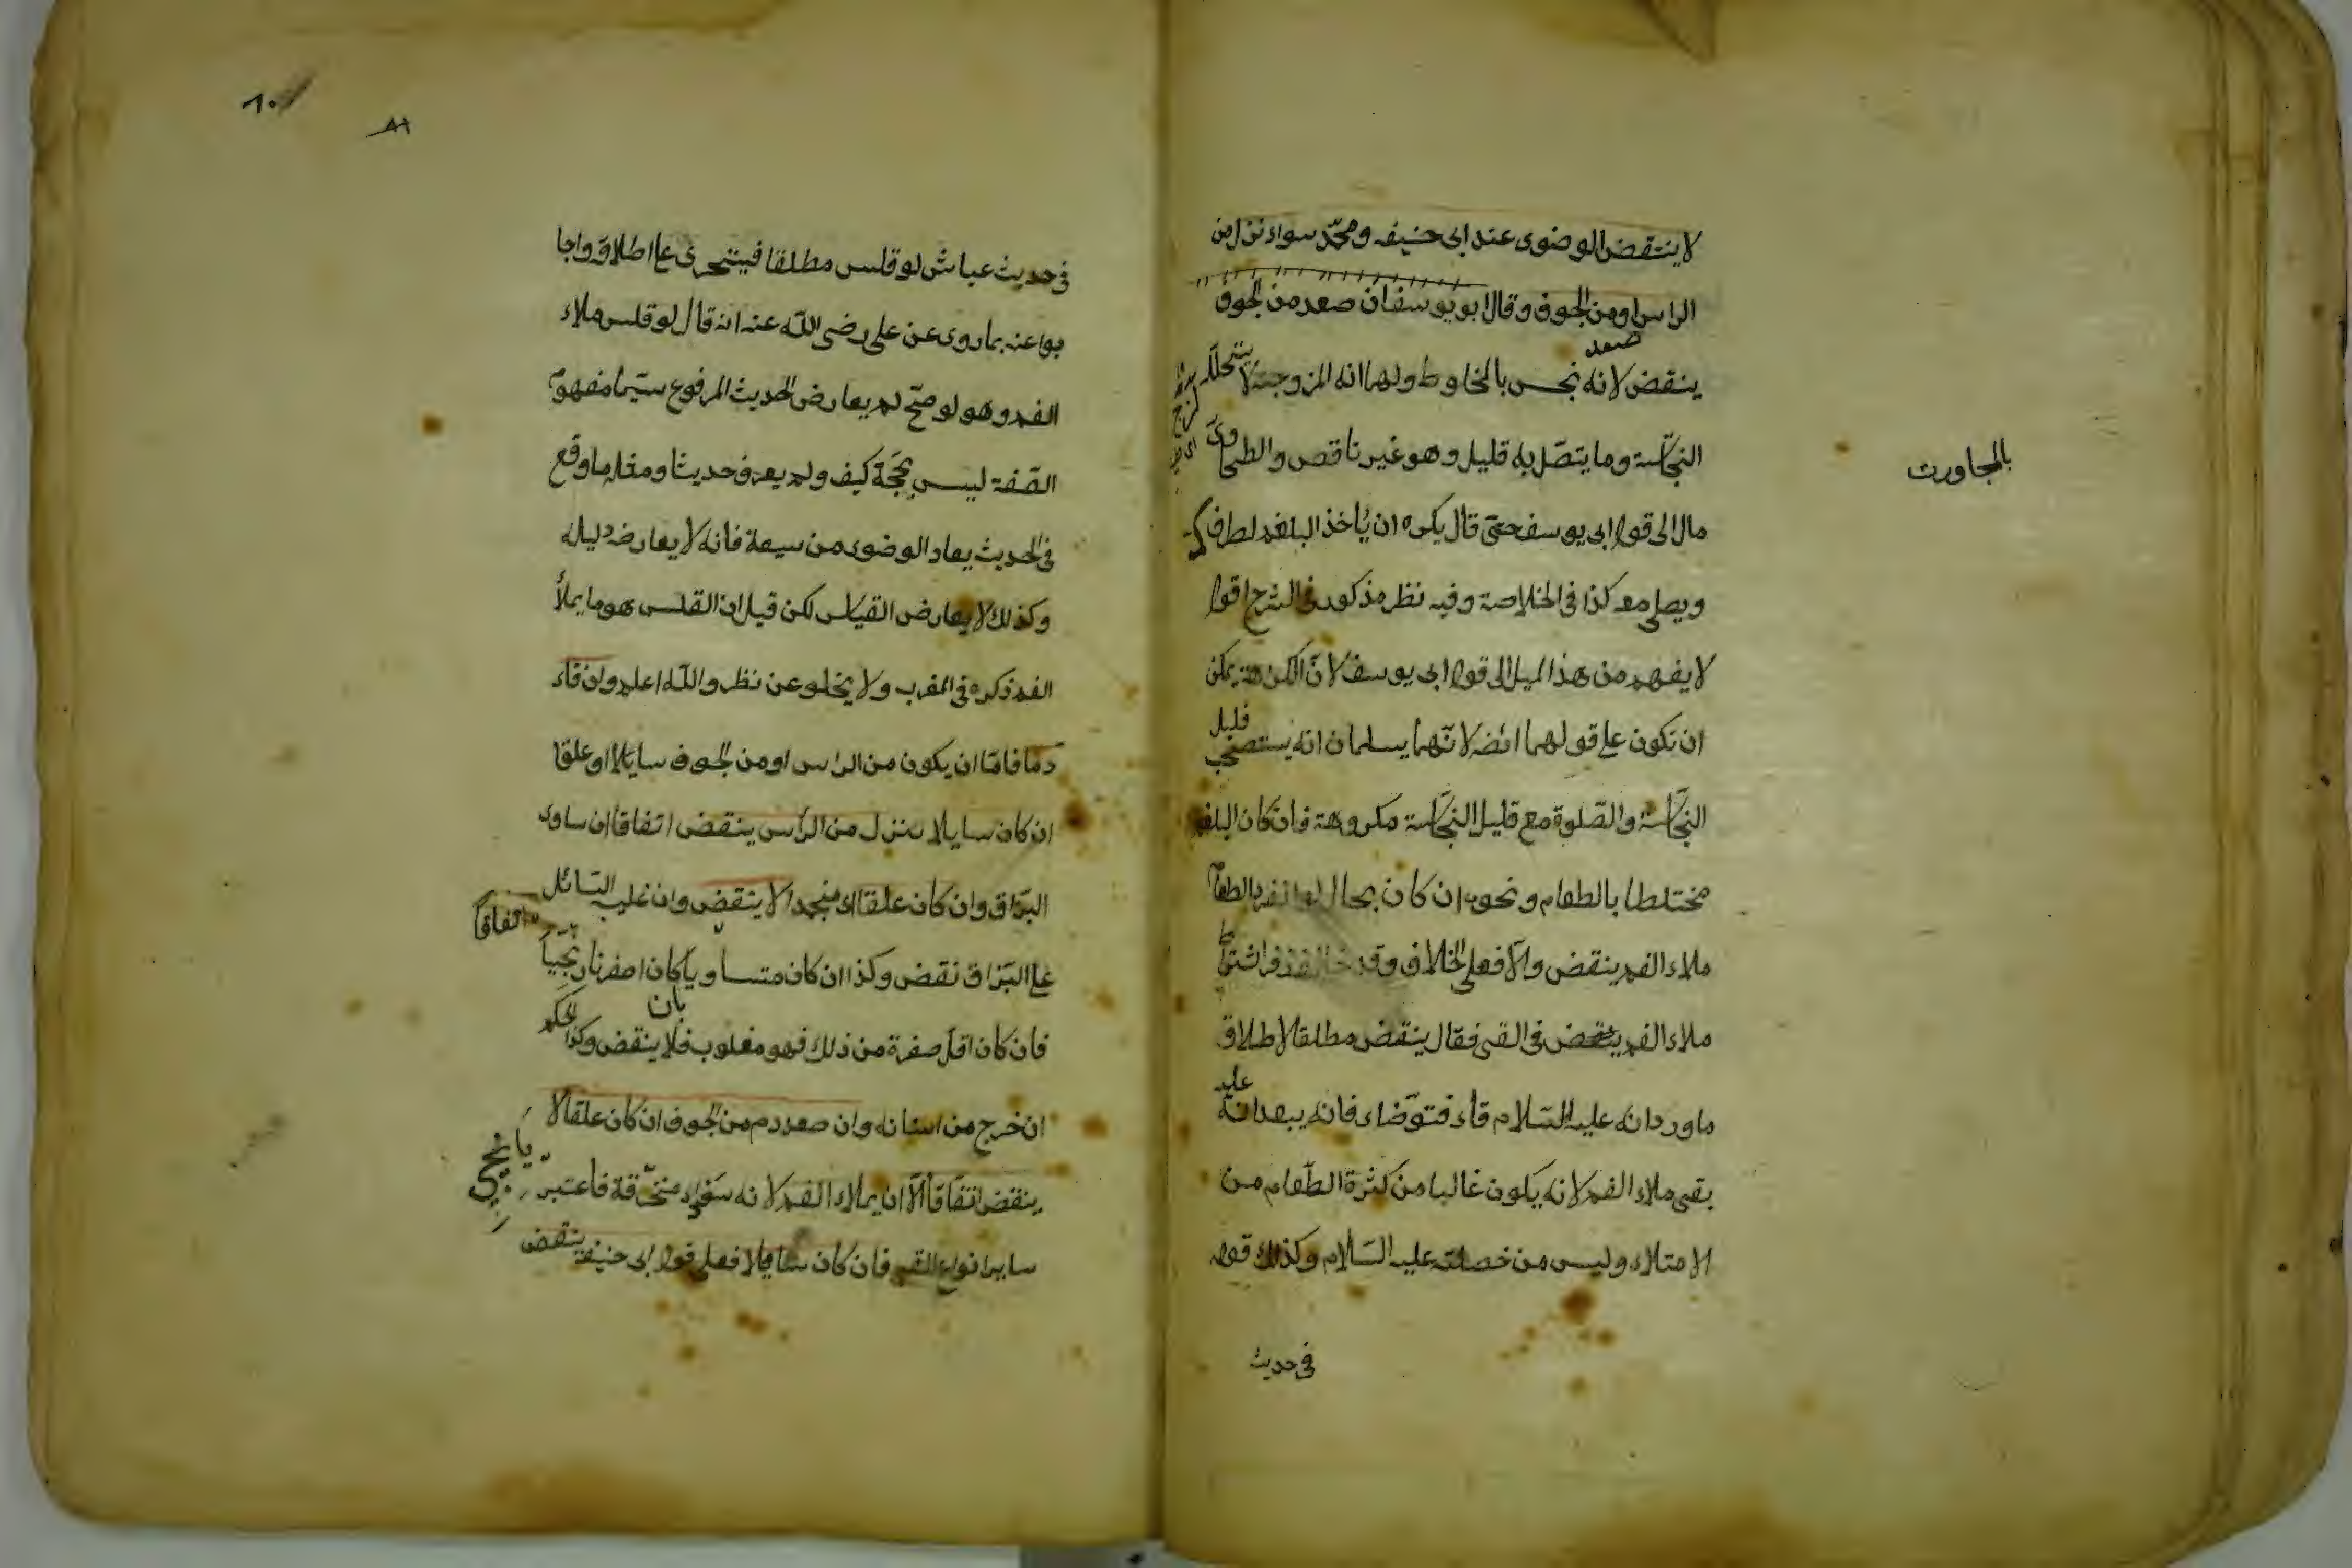 لا ينتقض الوضوى عند ابى حنيفه ومحمّد سواء نزل من
الراس او من الجوف وقال ابو يوسف ان صعد من الجوف
صعد
ينقض لانه نجس بالمخاوط ولهما انه لزوجته لا يتخلله
النجاسة وما يتصّل به قليل وهو غير ناقص والطحاوىّ
بالمجاورت
مال الى قول ابى يوسف حتى قال يكره ان يأخذ البلغم لطرف
ويصلى معه كذا فى الخلاصة وفيه نظر مذكور فى الشرح اقول
لا يفهم من هذا الميل الى قول ابى يوسف لانّ الكراهة يمكن
ان تكون على قولهما ائضه لانّهما يسلمان انه يستصحب
قليل
النجاسة والصّلوة مع قليل النجاسة مكروهة فان كان البلغم
مختلطا بالطعام ونحوه ان كان بحال لو انفرد الطعام
ملاء الفم ينقض والّا فعلى الخلاف وقد خالف زفر فى اشتراط
ملاء الفم فى القى فقال ينقض مطلقا لاطلاق
ما ورد انه عليه السّلام قاء فتوّضاء فانه يبعد انه
عليه
بقى ملاء الفم لانه يكون غالبا من كثرة الطّعام من
الامتلاء وليس من خصلته عليه السّلام وكذلك قوله
فى حديث
٨١
فى حديث عياش لو قلس مطلقا فيتجرى على اطلاقه واجا
بوا عنه بما روى عن على رضى اللّه عنه انه قال لو قلس ملاء
الفم وهو لو صحّ لم يعارض الحديث المرفوع سيّما مفهوم
الصّفة ليس بحجّة كيف ولم يعرف حديثا ومثله ما وقع
فى الحديث يعاد الوضوى من سبعة فانه لا يعارضه دليله
وكذلك لا يعارض القياس لكن قيل ان القلس هو ما يملأ
الفم ذكره فى المغرب ولا يخلو عن نظر واللّه اعلم وان قاء
دما فامّا ان يكون من الراس او من الجوف سايلا او علقا
ان كان سايلا ينزل من الرأس ينقض اتفاقا ان ساوى
البزاق وان كان علقا اى منجمدا لا ينتقض وان غلب السّائل
اتفاقا
على البزاق نقض وكذا ان كان متساويا كان اصفر نارنجيا
بان
فان كان اقلّ صفرة من ذلك فهو مغلوب فلا ينقض وكذا الحكم
ان خرج من اسنانه وان صعد دم من الجوف ان كان علقا لا
ينقض اتفاقا الّا ان يملاء الفم لانه سوداء محترقة فاعتبر
ساير انواع القى فان كان سايلا فعلى قول ابى حنيفة ينقض